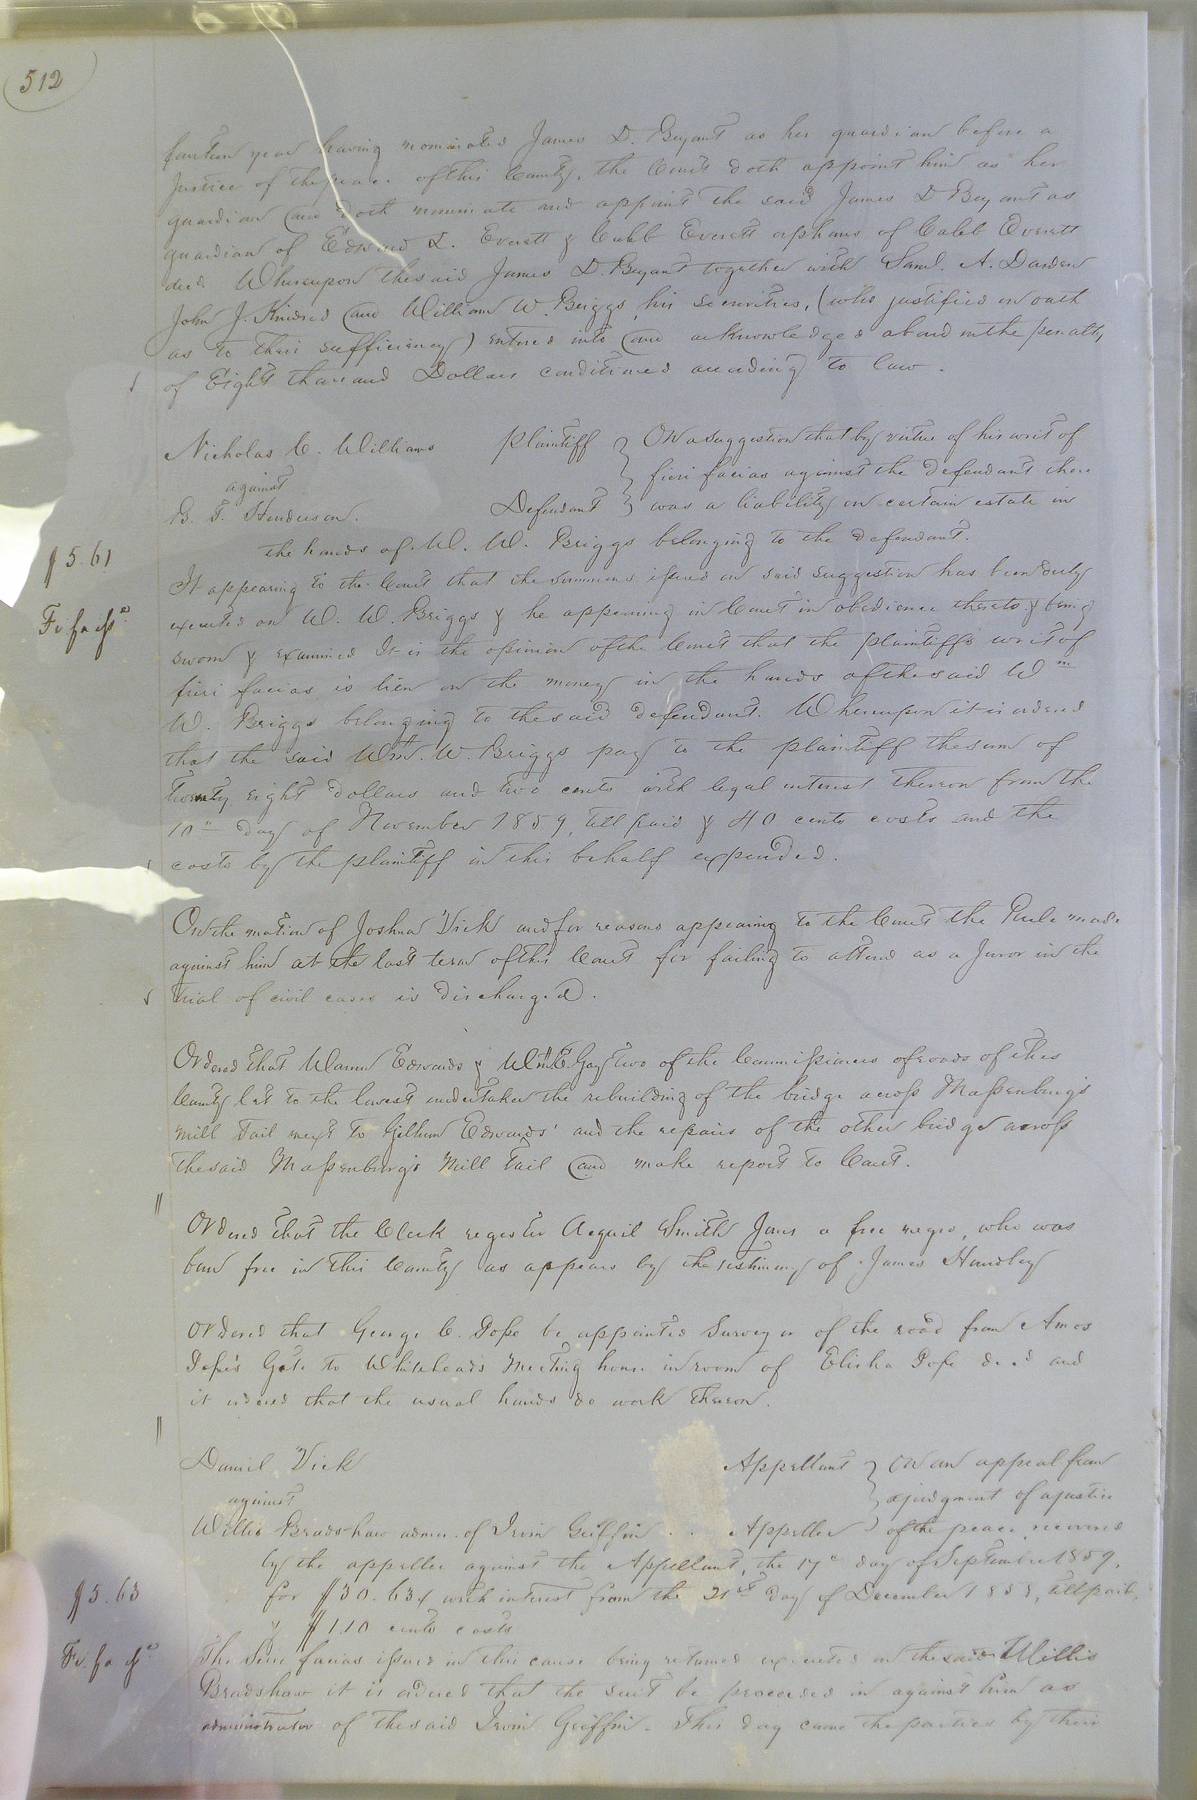 512
fourteen year having nominated James D. Bryant as her guardian before a
Justice of the peace of this County, the Court doth appoint him as her
guardian and doth nominate and appoint the said James D Bryant as
guardian of Edward L. Everett & Caleb Everett orphans of Caleb Everett
decd Whereupon the said James D. Bryant together with Saml. A. Darden
John J. Kindred and William W. Briggs his securities, (who justified on oath
as to their sufficiency) entered into and acknowledged a bond in the penalty
of Eight thousand Dollars conditioned according to law.
Nicholas C. Williams Plaintiff } On a suggestion that by virtue of his writ of
against } fieri facias against the defendant there
B. T. Henderson. Defendant } was a liability on certain estate in
the hands of W. W. Briggs belonging to the defendant.
$5.61
It appearing to the Court that the summons issued on said suggestion has been duly
executed on W. W. Briggs & he appearing in Court in obedience thereto & being
Fi fa
sworn & examined It is the opinion of the Court that the plaintiffs writ of
fieri facias is lien on the money in the hands of the said Wm
W. Briggs belonging to the said defendant. Whereupon it is ordered
that the said Wm. W. Briggs pay to the plaintiff the sum of
twenty eight dollars and two cents with legal interest thereon from the
10th day of November 1859, till paid & 40 cents costs and the
costs by the plaintiff in this behalf expended.
On the motion of Joshua Vick and for reasons appearing to the Court the Rule made
against him at the last term of this Court for failing to attend as a Juror in the
trial of civil cases is discharged.
Ordered that Edwards & Wm E. Gay two of the Commissioners of roads of this
County let to the lowest undertaker the rebuilding of the bridge across Massenburg's
Mill Tail next to Gilliam Edwards' and the repairs of the other bridge across
the said Massenburg's Mill Tail and make report to Court.
Ordered that the Clerk register Smith Jans a free negro, who was
born free in this County as appears by the testimony of James Hundley
Ordered that George C. Pope be appointed Surveyor of the road from Amos
Pope's Gate to Whitehead's Meeting house in room of Elisha Pope decd and
it ordered that the usual hands do work thereon.
Daniel Vick Appellant } On an appeal from
against } a judgment of a justice
Willis Bradshaw admr. of Irvin Griffin .. Appellee } of the peace,
by the appellee against the Appellant, the 17th day of September 1859,
$5.63
for $30.63¼ with interest from the 21st day of December 1858, till paid,
& $1.10 cents costs
Fi fa
The Scire facias issued in this cause being returned executed on the said Willis
Bradshaw it is ordered that the suit be proceeded in against him as
administrator of the said Irvin Griffin. This day came the parties by their